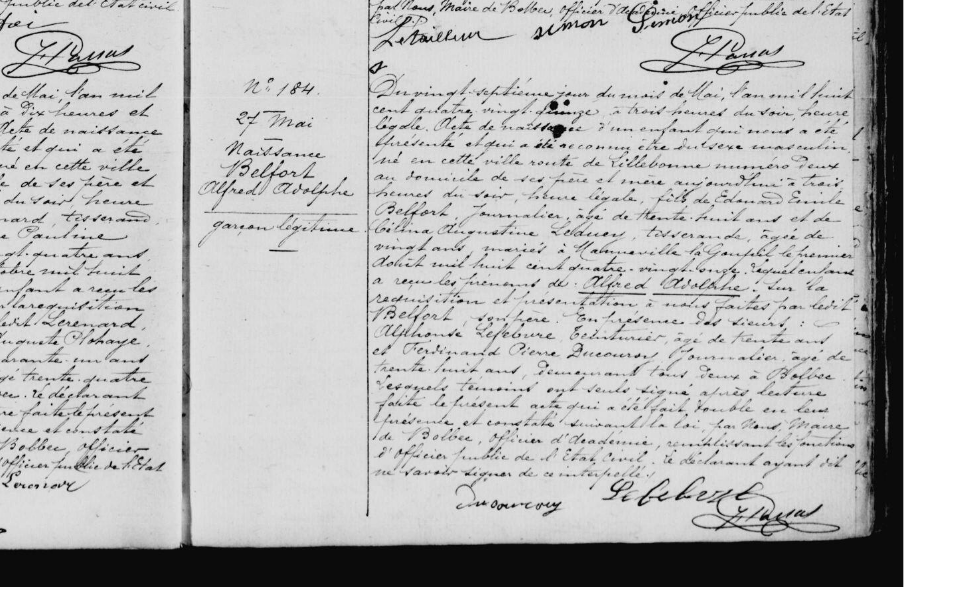 publique de l'Etat Civil
J Passas
de Mai, l'an mil
à Dix heures et
Acte de naissance
té et qui a été
né en cette ville
e de ses père et
du soir, heure
nard, tisserand,
e Pauline
ngt quatre ans
obre mil huit
enfant a reçu les
la requisition
ledit Lerenard,
uguste
arante un ans
gé trente quatre
bec. Le déclarant
re faite le présent
sence et constaté
Bolbec, officier
d'officier public de l'Etat
N° 184.
27 Mai
Naissance
Belfort
Alfred Adolphe
garçon légitime
par Nous, Maire de Bolbec, Officier d'Académie, officier public de l'Etat
Civil.
Letailleur Simon Simon
J Passas
Du vingt-septième jour du mois de Mai, l'an mil huit
cent quatre-vingt-quinze, à trois heures du soir, heure
légale. Acte de naissance d'un enfant qui nous a été
présenté et qui a été reconnu être du sexe masculin,
né en cette ville route de Lillebonne numéro Deux
au domicile de ses père et mère aujourd'hui à trois
heures du soir, heure légale, fils de Edouard Emile
Belfort, journalier, âgé de trente huit ans et de
Célina Augustine Leducq, tisserande, âgée de
vingt ans, mariés à Manneville la Goupil le premier
Août mil huit cent quatre-vingt-onze. Lequel enfant
a reçu les prénoms de: Alfred Adolphe. Sur la
requisition et présentation à nous faites par ledit
Belfort, son père. En présence des sieurs:
Alphonse Lefebvre, Teinturier, âgé de trente ans
et Ferdinand Pierre Ducouroy, journalier, âgé de
trente huit ans, demeurant tous deux à Bolbec.
Lesquels témoins ont seuls signé après lecture
faite le présent acte qui a été fait double en leur
présence et constaté suivant la loi, par Nous, Maire
de Bolbec, officier d'Académie, remplissant les fonctions
d'officier public de l'Etat Civil. Le déclarant ayant dit
ne savoir signer de ce interpellé.
Ducouroy Lefebvre
J Passas